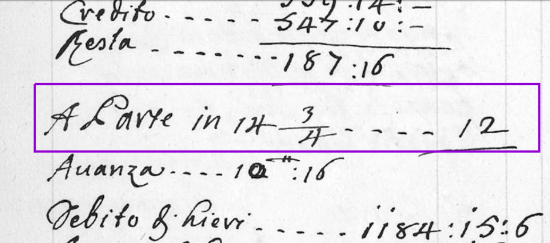 Credito - - - - 559:14:-
547:10:-
Resta - - - - - - - - 187:16
A Parte in 14 3/4 - - - - - 12
Auanza - - - - 10:16
Debito & hieri - - - - - 1184:15:6